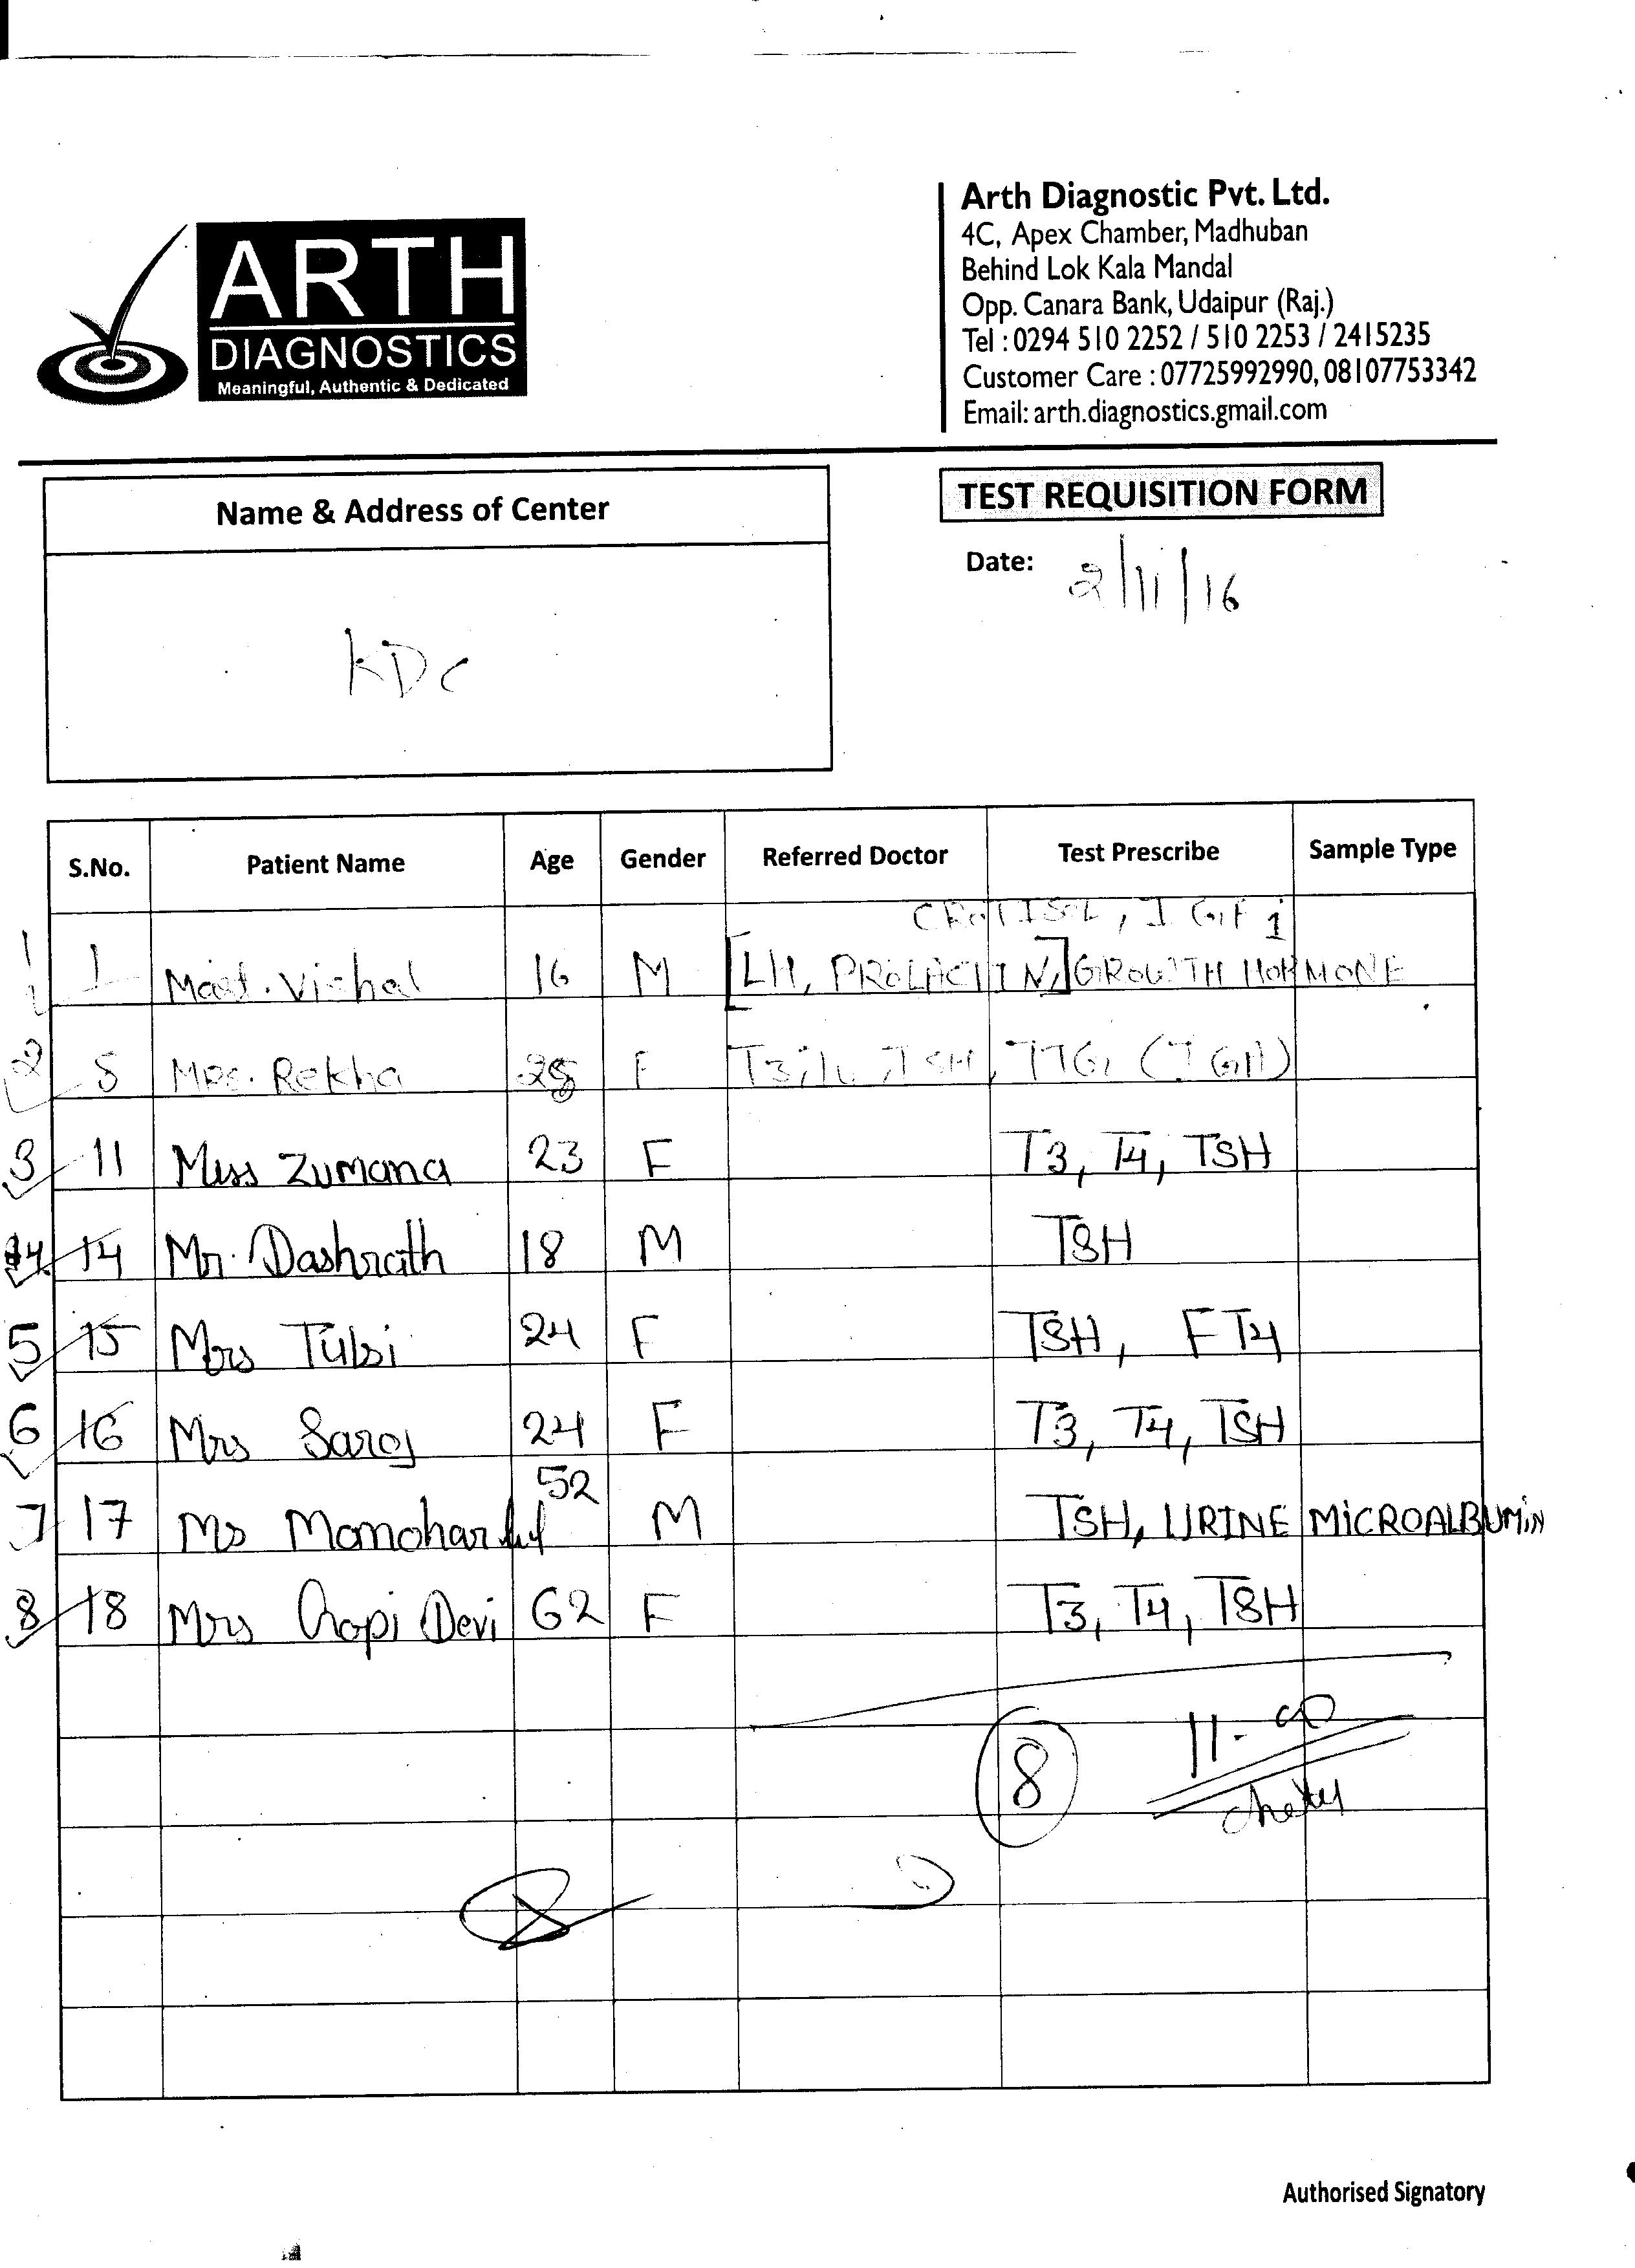 Arth Diagnostic Pvt. Ltd.
4C, Apex Chamber, Madhuban
Behind Lok Kala Mandal
Opp. Canara Bank, Udaipur (Raj.)
Tel : 0294 510 2252 / 510 2253 / 2415235
Customer Care : 07725992990, 08107753342
Email: arth.diagnostics.gmail.com
ARTH
DIAGNOSTICS
Meaningful, Authentic & Dedicated
Name & Address of Center
KDC
TEST REQUISITION FORM
Date: 2/11/16
S.No. Patient Name Age Gender Referred Doctor Test Prescribe Sample Type
CROTISOL, IGF 1
1 1 Mast. Vishal 16 M [LH, PROLACTIN,] GROWTH HORMONE
2 5 Mrs. Rekha F T3, T4, TSH, TTG, (IGA)
3 11 Miss Zumana 23 F T3, T4, TSH
4 14 Mr. Dashrath 18 M TSH
5 15 Mrs Tulsi 24 F TSH, FT4
6 16 Mrs Saroj 24 F T3, T4, TSH
7 17 Mr Manohar lal 52 M TSH, URINE MiCROALBUMiN
8 18 Mrs Gopi Devi 62 F T3, T4, TSH
8 11-00
Authorised Signatory